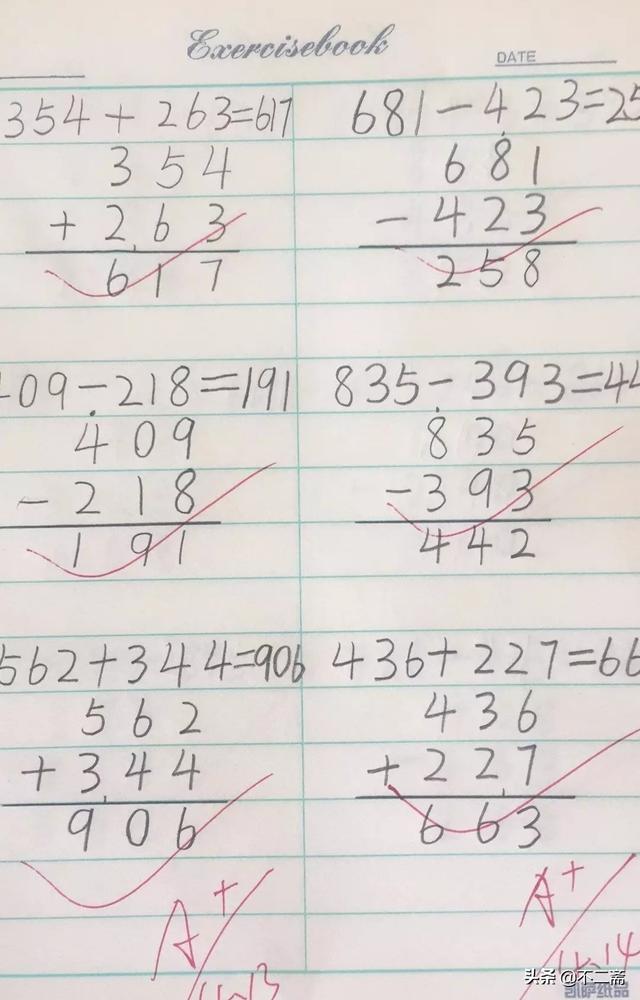 Exercisebook
DATE
354+263=617
354
+263
617
681-423=25
681
-423
258
409-218=191
409
-218
191
835-393=44
835
-393
442
562+344=906
562
+344
906
436+227=66
436
+227
663
A+
11.13
A+
11.14
头条 @不二斋
凯萨纸品